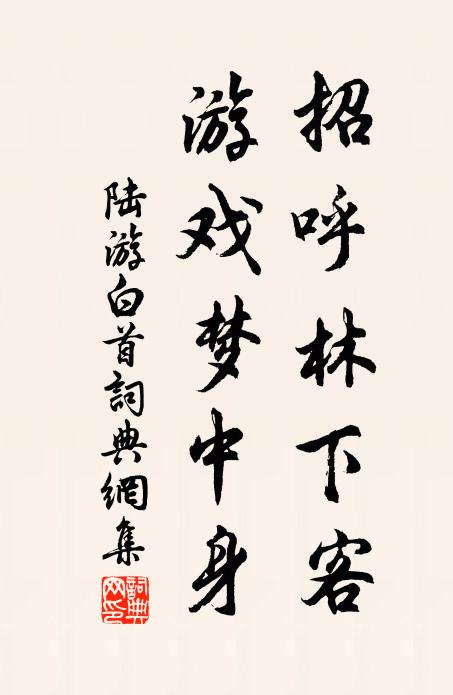 招呼林下客
游戏梦中身
陆游白首詞典網集
詞典网印